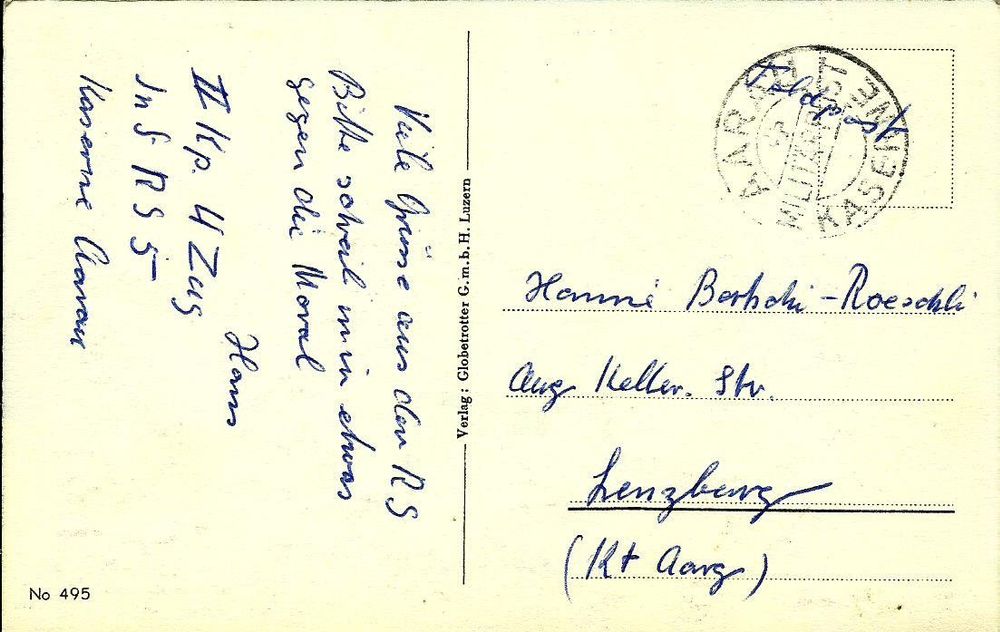 Viele Grüsse aus der RS
Bitte schreib mir etwas
gegen die Moral
Hans
II Kp. 4 Zug
Inf RS 5
Kaserne Aarau
Verlag: Globetrotter G.m.b.H. Luzern
No 495
Feldpost
AARAU
MILITÄRPOST
KASERNE
Hanni -Roeschli
Aug Keller. Str.
Lenzburg
(Kt Aarg)